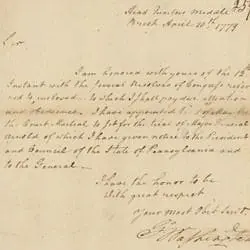 Head Quarters Middle
Brook April 20th 1779
Sir
I am honored with yours of the 12th
Instant with the several Resolves of Congress
to which I shall pay due attention
and obedience. I have appointed
the Court Martial to sit for the trial of Major General
Arnold of which I have given notice to the President
and Council of the State of Pennsylvania and
to the General
I have the honor to be
with great respect
Your Most Obet Servt
G Washington